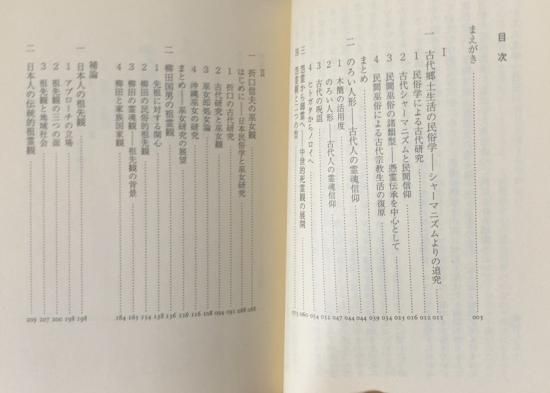 目次
まえがき 003
I
一 古代郷土生活の民俗学——シャーマニズムよりの追究
1 民俗学による古代研究 012
2 古代シャーマニズムと民間信仰 016
3 民間巫俗の諸類型——憑霊伝承を中心として 023
4 民間巫俗による古代宗教生活の復原 034
まとめ 039
二 のろい人形——古代人の霊魂信仰 044
1 木簡の活用度 044
2 のろい人形——古代人の霊魂信仰 047
3 古代の呪詛
4 ヒトガタからノロイへ
三 怨霊から幽霊へ——中世的死霊観の展開
一 折口信夫の巫女観
はじめに——日本民俗学と巫女研究
1 折口の古代研究
2 古代研究と巫女観
3 巫女即妃女論
4 沖縄巫女の研究
まとめ——巫女研究の展望
二 柳田国男の祖霊観
1 先祖に対する関心
2 柳田の民俗的祖先観
3 柳田の霊魂観——祖先観の背景
4 柳田と家族国家観 184
補論
一 日本人の祖先観 198
1 アプローチの立場 198
2 祖先観の三つの面 200
3 祖先観と地域社会 207
二 日本人の伝統的祖霊観 209